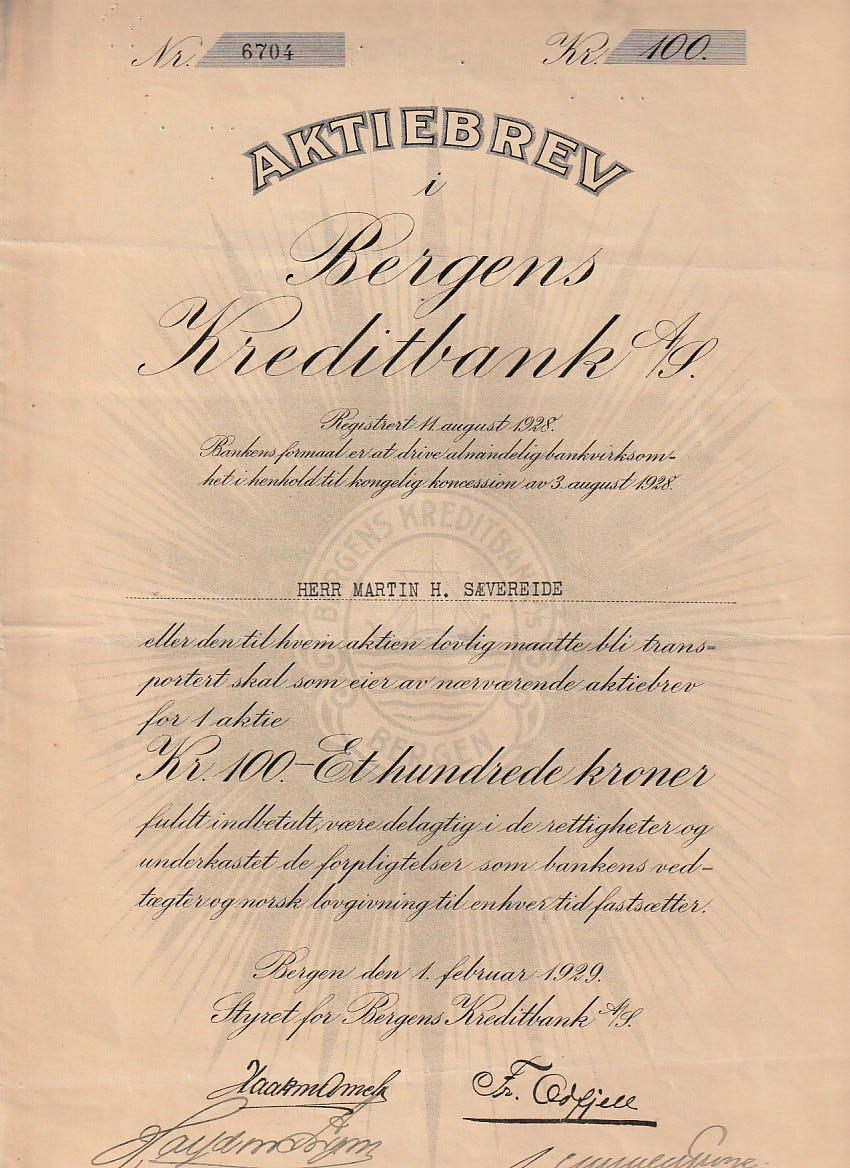 Nr. 6704 Kr. 100.
AKTIEBREV
i
Bergens
Kreditbank A/S.
Registrert 11. august 1928.
Bankens formaal er at drive almindelig bankvirksom-
het i henhold til kongelig koncession av 3. august 1928.
BERGENS KREDITBANK A/S
BERGEN
HERR MARTIN H. SÆVEREIDE
eller den til hvem aktien lovlig maatte bli trans-
portert skal som eier av nærværende aktiebrev
for 1 aktie
Kr. 100.- Et hundrede kroner
fuldt indbetalt, være delagtig i de rettigheter og
underkastet de forpligtelser som bankens ved-
tægter og norsk lovgivning til enhver tid fastsætter.
Bergen den 1. februar 1929.
Styret for Bergens Kreditbank A/S.
Fr. Odfjell